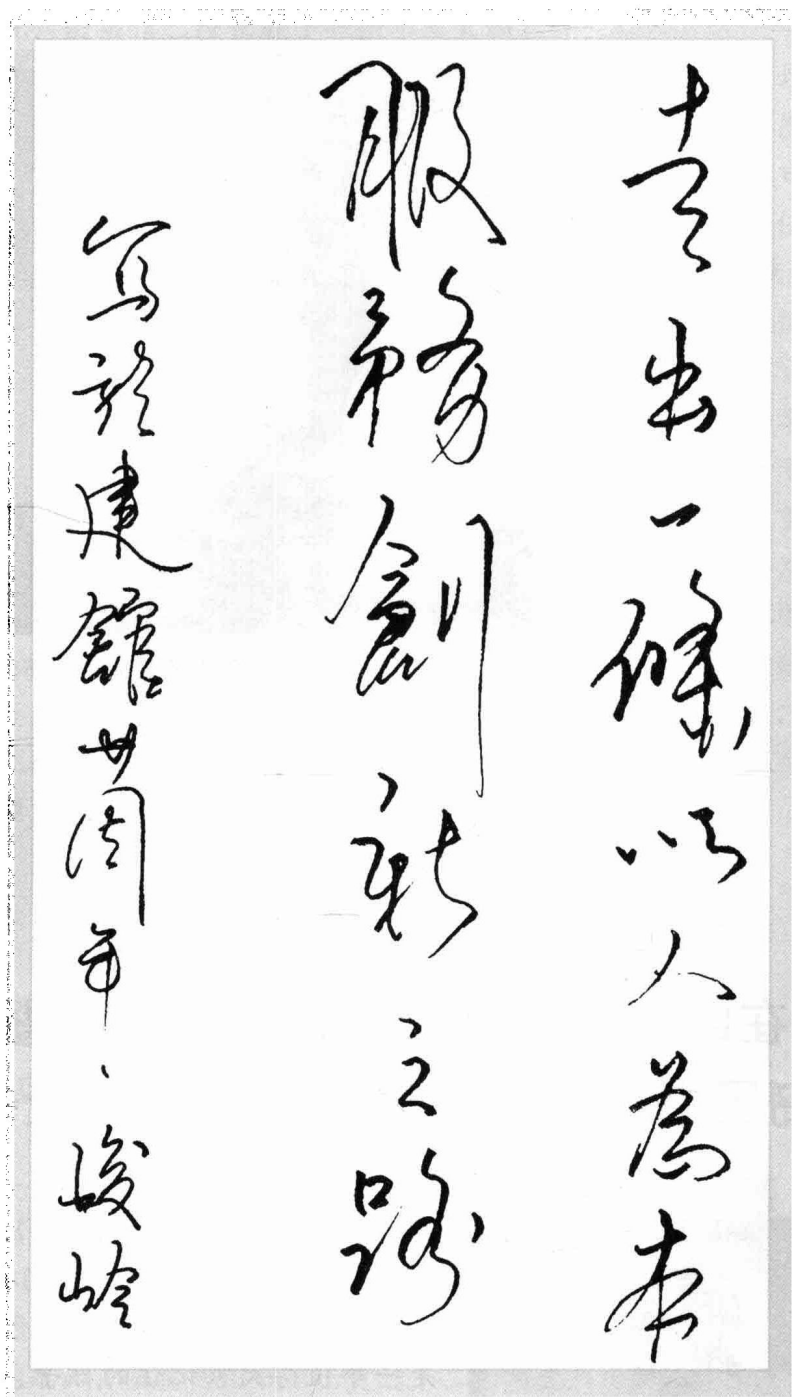 走出一條以人為本
服務創新之路
寫於建館廿周年、峻嶺